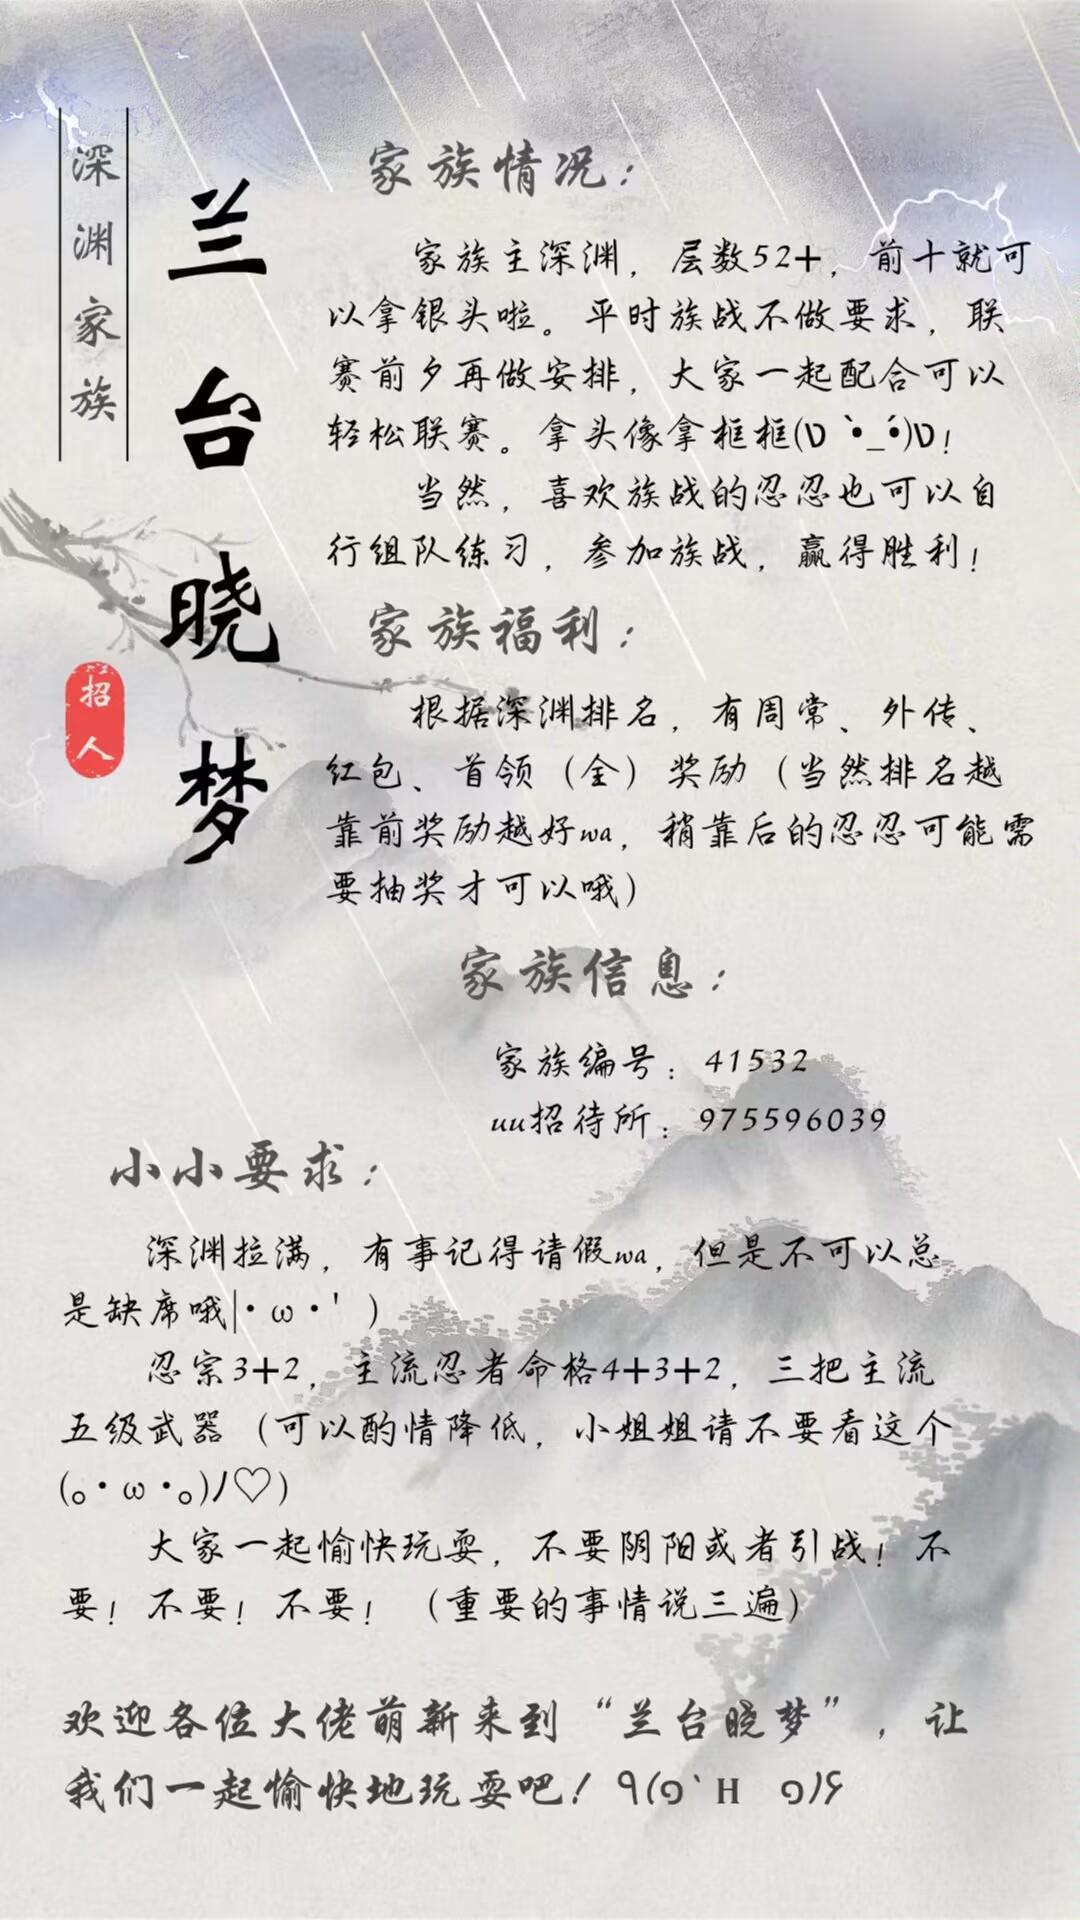 深渊家族
兰台晓梦
招人
家族情况：
家族主深渊，层数52+，前十就可
以拿银头啦。平时族战不做要求，联
赛前夕再做安排，大家一起配合可以
轻松联赛。拿头像拿框框(ง •̀_•́)ง！
当然，喜欢族战的忍忍也可以自
行组队练习，参加族战，赢得胜利！
家族福利：
根据深渊排名，有周常、外传、
红包、首领（全）奖励（当然排名越
靠前奖励越好wa，稍靠后的忍忍可能需
要抽奖才可以哦）
家族信息：
家族编号：41532
uu招待所：975596039
小小要求：
深渊拉满，有事记得请假wa，但是不可以总
是缺席哦|·ω·'）
忍宗3+2，主流忍者命格4+3+2，三把主流
五级武器（可以酌情降低，小姐姐请不要看这个
(｡·ω·｡)ﾉ♡）
大家一起愉快玩耍，不要阴阳或者引战！不
要！不要！不要！（重要的事情说三遍）
欢迎各位大佬萌新来到“兰台晓梦”，让
我们一起愉快地玩耍吧！٩(๑`н ๑)۶